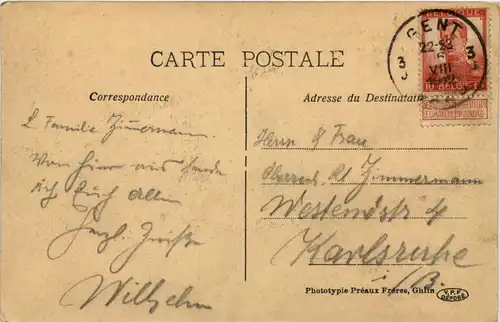 CARTE POSTALE
Correspondance
Adresse du Destinataire
GENT
3 3
22-23
VIII
BELGIQUE
10 BELGIË 10
L Familie Zimmermann.
Von hier aus sende
ich Euch allen
Herzl. Grüße
Wilhelm
Herrn & Frau
Zimmermann
Westendstr
Karlsruhe
i/B.
Phototypie Préaux Frères, Ghlin
V.P.F.
DÉPOSÉ